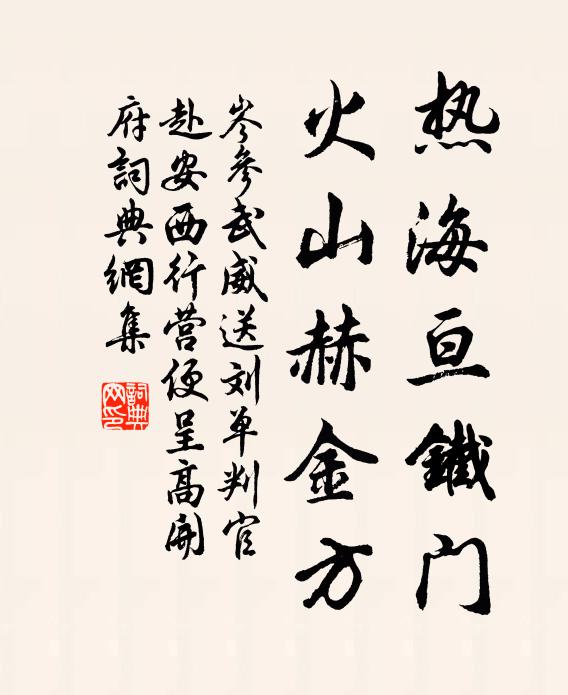 热海亘鐵门
火山赫金方
岑參武威送刘单判官
赴安西行营便呈高開
府詞典網集
詞典
网印